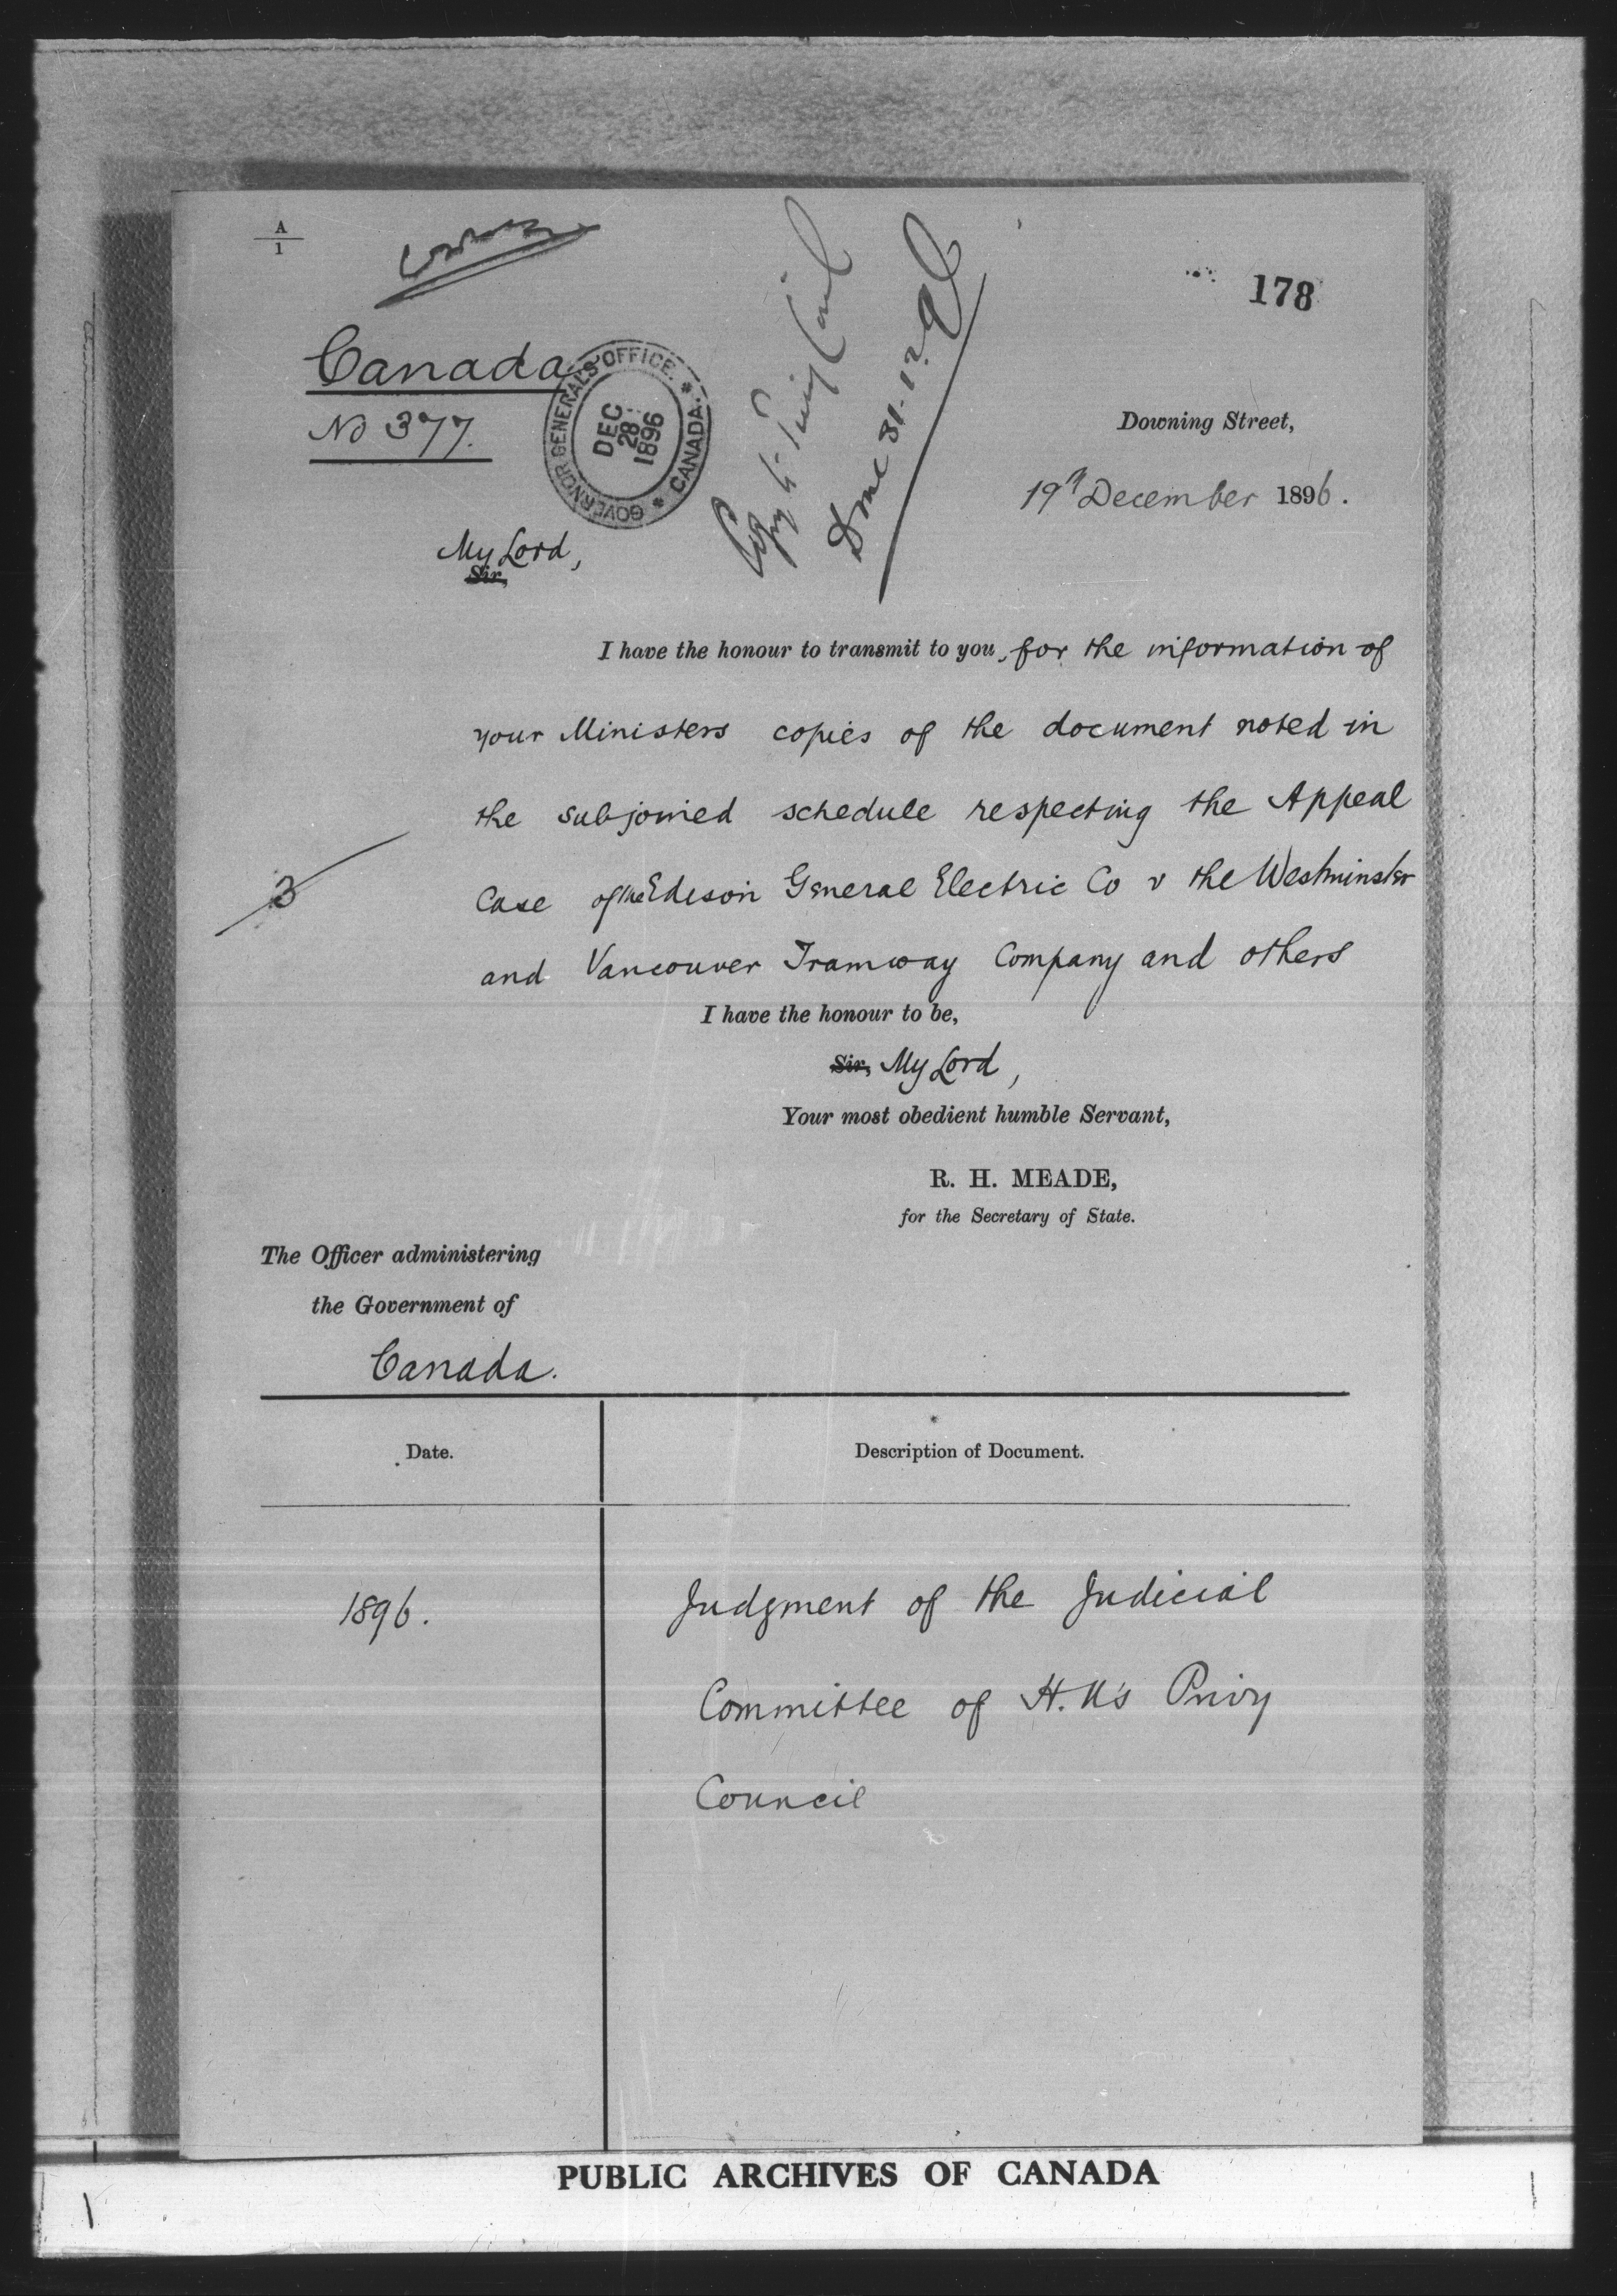 A
1
178
Canada
No 377.
GOVERNOR GENERAL'S OFFICE. * CANADA. *
DEC
28
1896
Copy to Privy Council
Done 31.12.96
Downing Street,
19th December 1896.
My Lord,
Sir,
I have the honour to transmit to you, for the information of
your Ministers copies of the document noted in
the subjoined schedule respecting the Appeal
3
Case of the Edison General Electric Co v the Westminster
and Vancouver Tramway Company and others
I have the honour to be,
Sir, My Lord,
Your most obedient humble Servant,
R. H. MEADE,
for the Secretary of State.
The Officer administering
the Government of
Canada.
Date.
Description of Document.
1896.
Judgment of the Judicial
Committee of H.M's Privy
Council
PUBLIC ARCHIVES OF CANADA